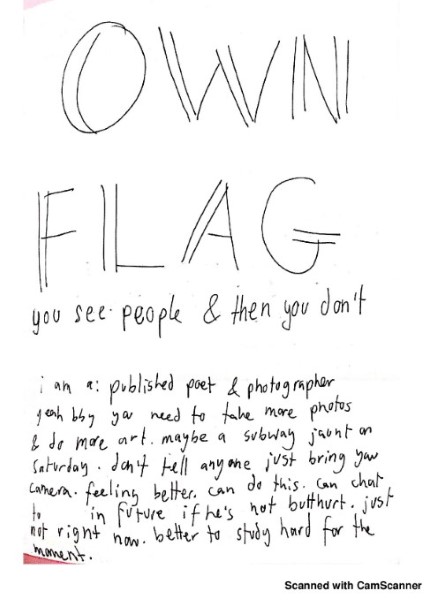 OWN
FLAG
you see people & then you don't
i am a: published poet & photographer
yeah bby you need to take more photos
& do more art. maybe a subway jaunt on
saturday. don't tell anyone just bring your
camera. feeling better. can do this. can chat
to in future if he's not butthurt. just
not right now. better to study hard for the
moment.
Scanned with CamScanner